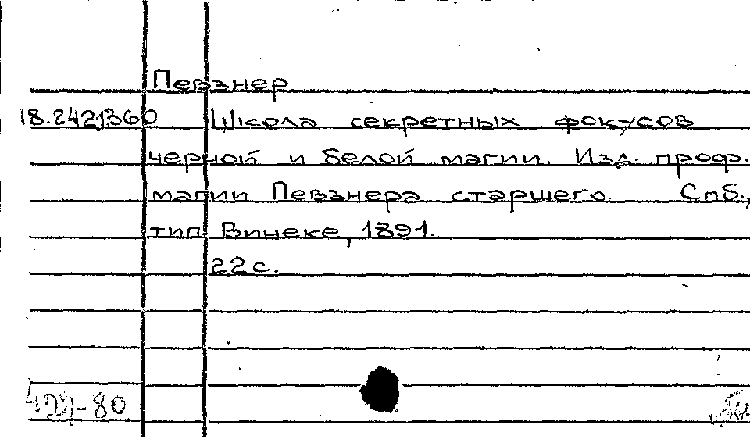 Певзнер
18.242.360 Школа секретных фокусов
черной и белой магии. Изд. проф.
магии Певзнера старшего. Спб.,
тип. Винеке, 1891.
22 с.